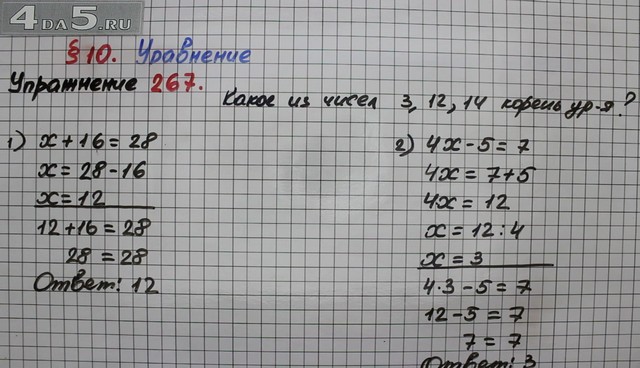 4DA5.RU
§10. Уравнение
Упражнение 267.
Какое из чисел 3, 12, 14 корень ур-я?
1) x + 16 = 28
x = 28 - 16
x = 12
12 + 16 = 28
28 = 28
Ответ: 12
2) 4x - 5 = 7
4x = 7 + 5
4x = 12
x = 12 : 4
x = 3
4 · 3 - 5 = 7
12 - 5 = 7
7 = 7
Ответ: 3